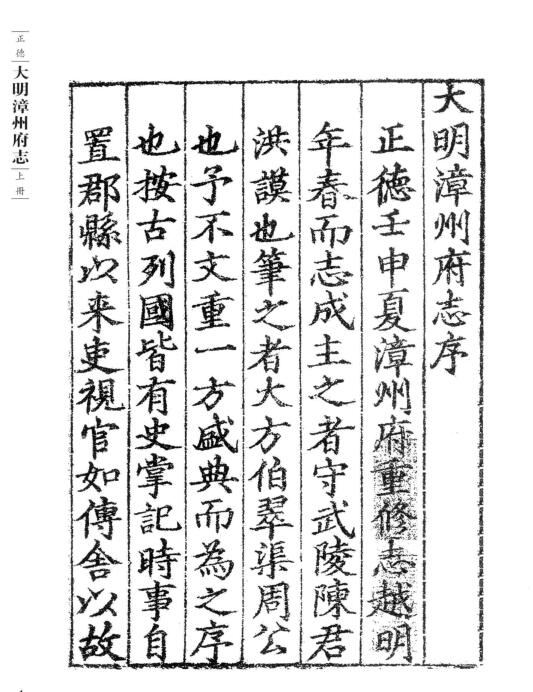 正德
大明漳州府志
上冊
大明漳州府志序
正德壬申夏漳州府重修志越明
年春而志成主之者守武陵陳君
洪謨也筆之者大方伯翠渠周公
也予不文重一方盛典而為之序
也按古列國皆有史掌記時事自
置郡縣以来吏視官如傳舍以故